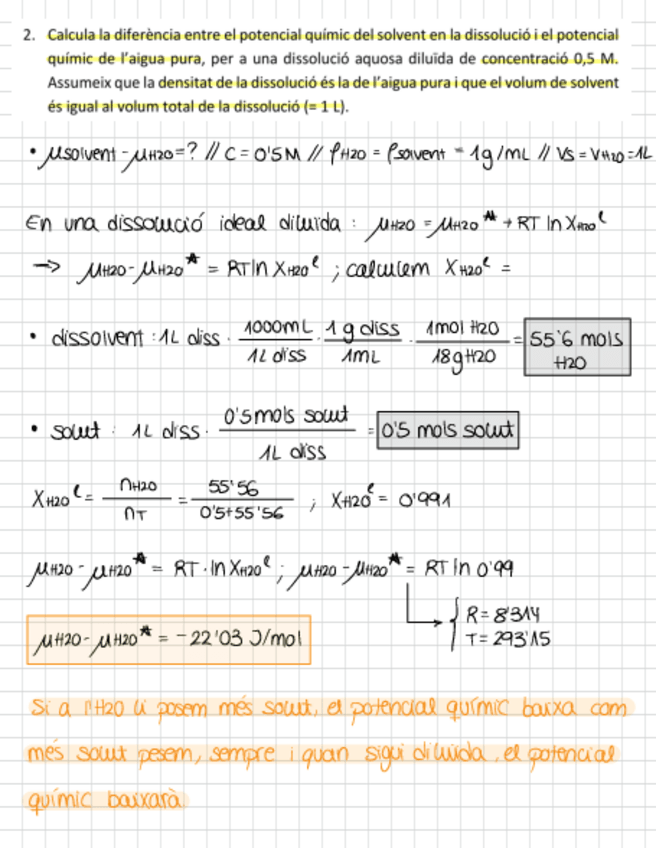 2. Calcula la diferència entre el potencial químic del solvent en la dissolució i el potencial
químic de l'aigua pura, per a una dissolució aquosa diluïda de concentració 0,5 M.
Assumeix que la densitat de la dissolució és la de l'aigua pura i que el volum de solvent
és igual al volum total de la dissolució (= 1 L).
• μsolvent - μH2O = ? // C = 0'5M // ρH2O = ρsolvent = 1g/mL // Vs = VH2O = 1L
En una dissolució ideal diluïda : μH2O = μH2O* + RT ln XH2Oˡ
→ μH2O - μH2O* = RT ln XH2Oˡ ; calculem XH2Oˡ =
• dissolvent : 1L diss · 1000mL / 1L diss · 1 g diss / 1mL · 1mol H2O / 18gH2O = 55'6 mols H2O
• solut : 1L diss · 0'5mols solut / 1L diss = 0'5 mols solut
XH2Oˡ = nH2O / nT = 55'56 / 0'5+55'56 ; XH2Oˡ = 0'991
μH2O - μH2O* = RT · ln XH2Oˡ ; μH2O - μH2O* = RT ln 0'99
R = 8'314
T = 293'15
μH2O - μH2O* = -22'03 J/mol
Si a l'H2O li posem més solut, el potencial químic baixa com
més solut pesem, sempre i quan sigui diluida, el potencial
químic baixarà